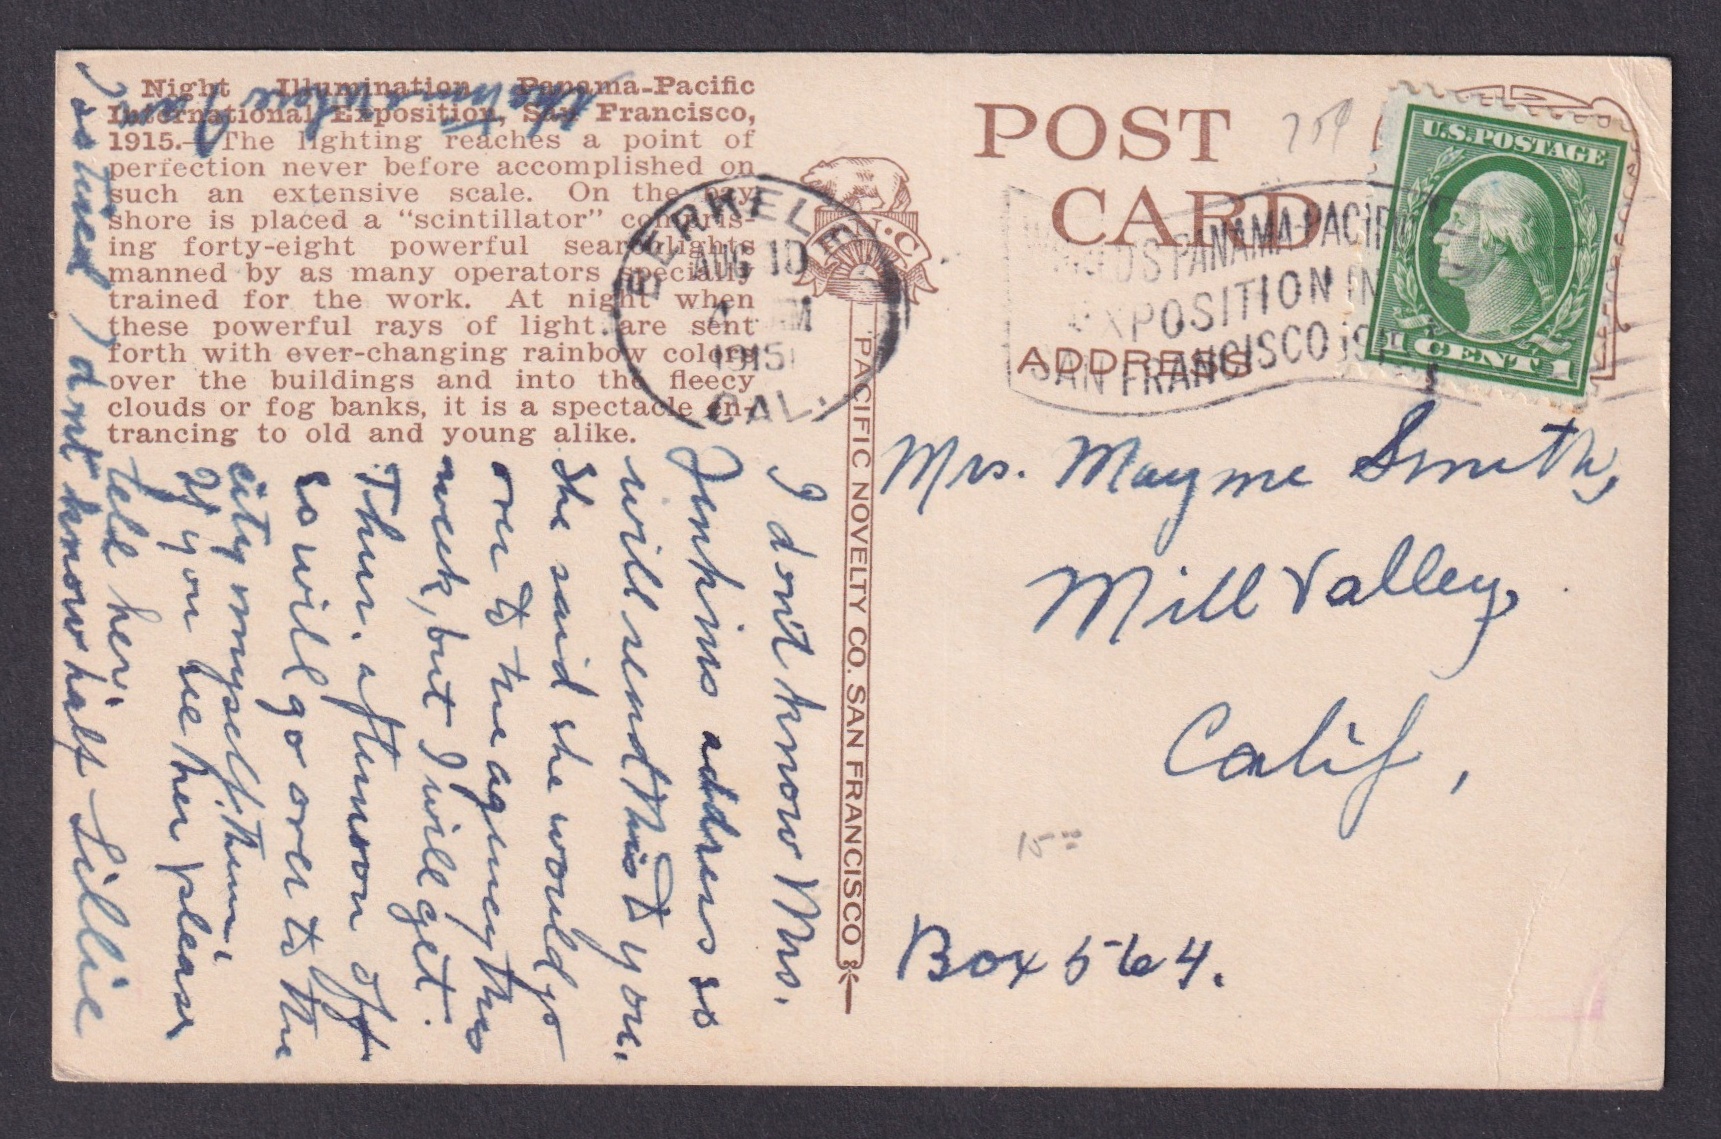 Night Illumination, Panama-Pacific
International Exposition, San Francisco,
1915.—The lighting reaches a point of
perfection never before accomplished on
such an extensive scale. On the bay
shore is placed a "scintillator" compris-
ing forty-eight powerful searchlights
manned by as many operators specially
trained for the work. At night when
these powerful rays of light are sent
forth with ever-changing rainbow colors
over the buildings and into the fleecy
clouds or fog banks, it is a spectacle en-
trancing to old and young alike.
POST
CARD
ADDRESS
PACIFIC NOVELTY CO. SAN FRANCISCO
BERKELEY
AUG 10
4 PM
1915
CAL.
WORLD'S PANAMA-PACIFIC
EXPOSITION IN
SAN FRANCISCO 1915
U.S. POSTAGE
1 CENT 1
Mrs. Mayme Smith,
Mill Valley,
Calif,
Box 564.
15.00
I don't know Mrs.
Jenkins address so
will send this to you.
She said she would go
over to the agency this
week, but I will get
Thur. afternoon off
so will go over to the
city myself then.
If you see her please
tell her.
I as tired I dont know half
the time where I am
Lillie